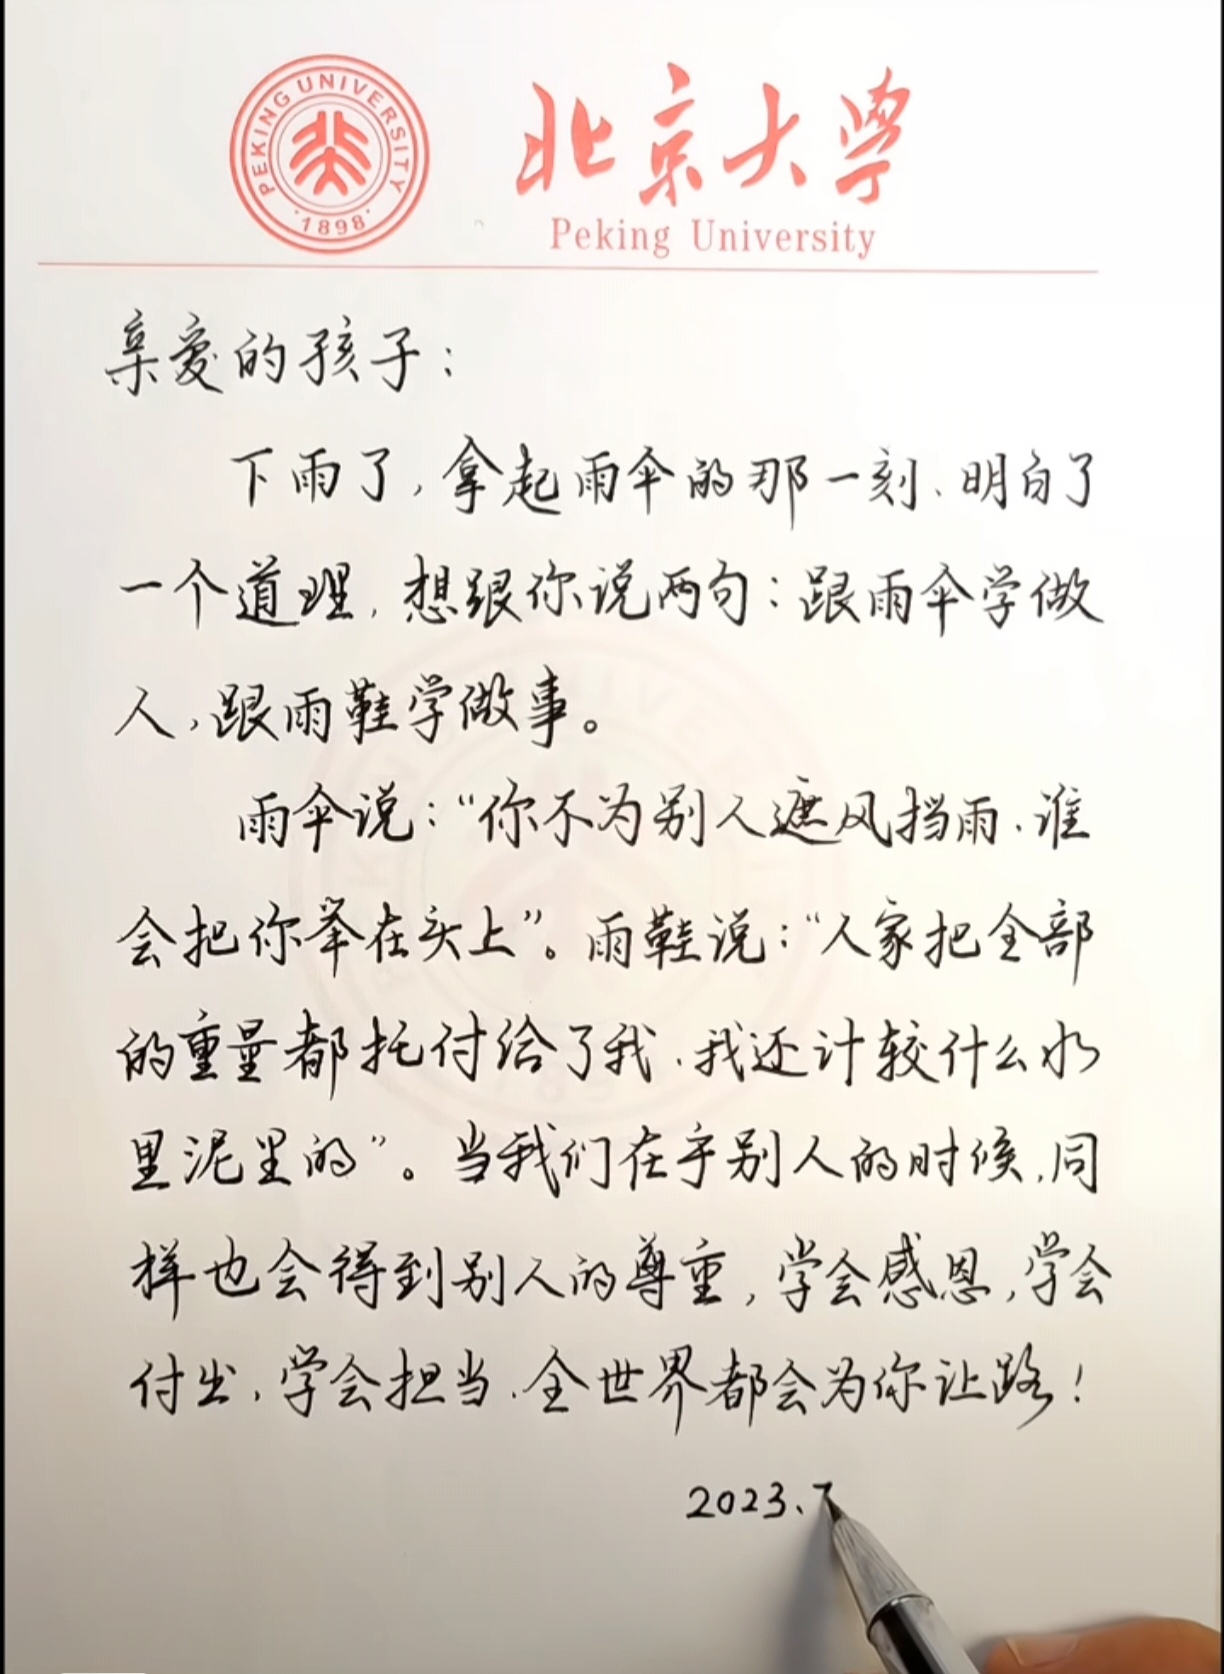 PEKING UNIVERSITY
1898
北京大学
Peking University
亲爱的孩子：
下雨了，拿起雨伞的那一刻、明白了
一个道理，想跟你说两句：跟雨伞学做
人，跟雨鞋学做事。
雨伞说：“你不为别人遮风挡雨、谁
会把你举在头上”。雨鞋说：“人家把全部
的重量都托付给了我、我还计较什么水
里泥里的”。当我们在乎别人的时候，同
样也会得到别人的尊重，学会感恩，学会
付出，学会担当、全世界都会为你让路！
2023、